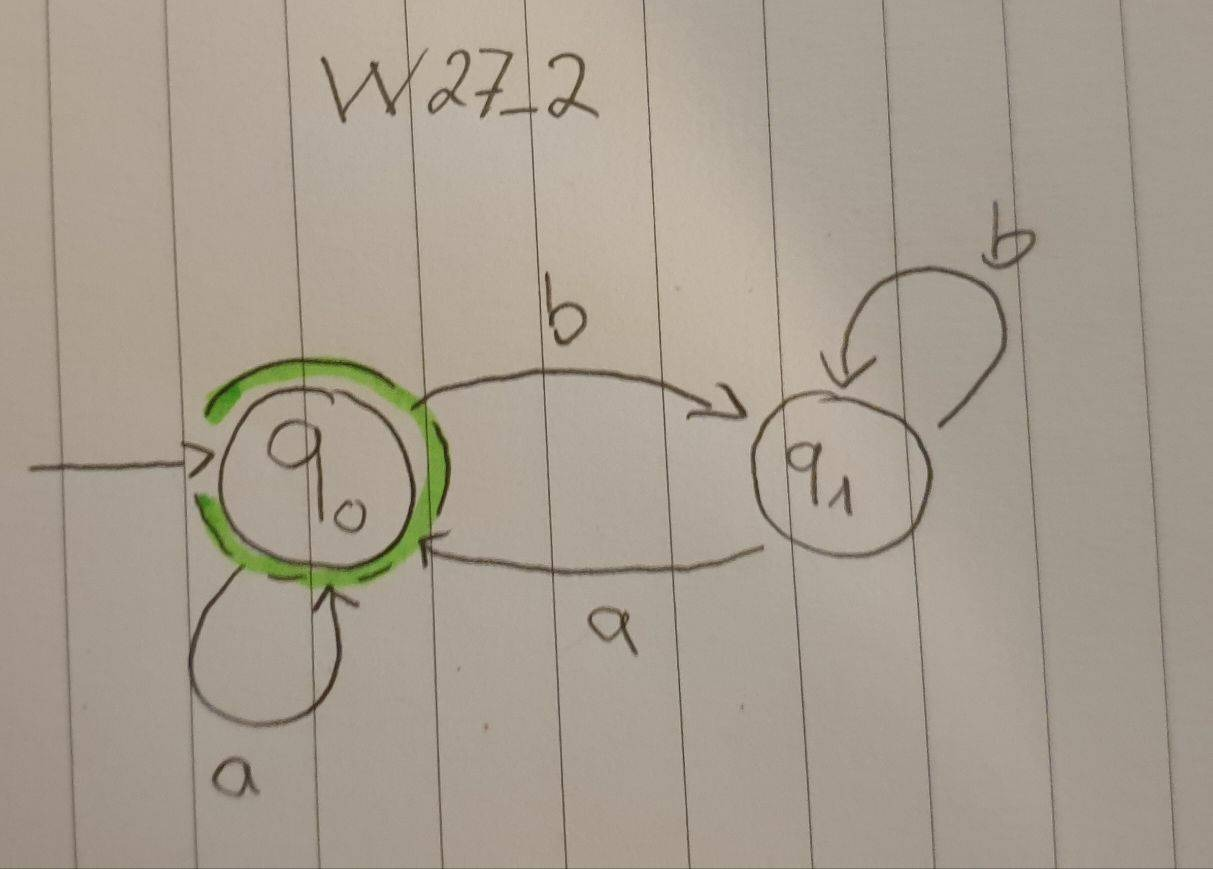 W27_2
b
b
q0
q1
a
a